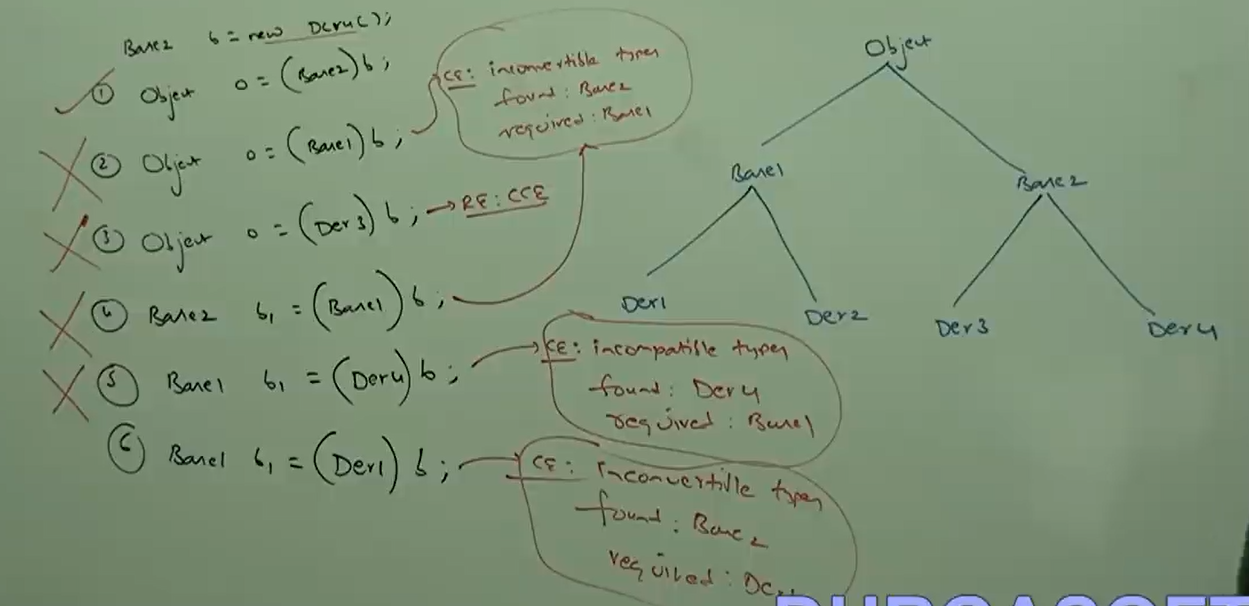 Base2 b = new Der4();
① Object o = (Base2) b;
② Object o = (Base1) b;
CE: inconvertible types
found: Base2
required: Base1
③ Object o = (Der3) b; → RE: CCE
④ Base2 b1 = (Base1) b;
⑤ Base1 b1 = (Der4) b;
CE: incompatible types
found: Der4
required: Base1
⑥ Base1 b1 = (Der1) b;
CE: inconvertible types
found: Base2
required:
Object
Base1 Base2
Der1 Der2 Der3 Der4